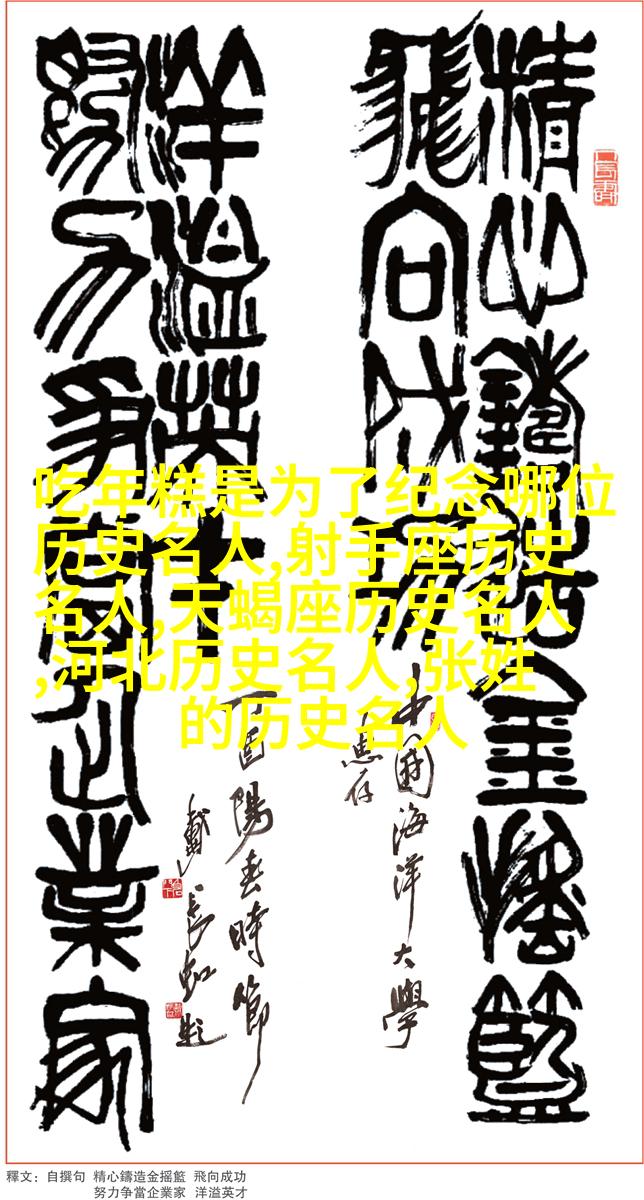 精心鑄造金摇籃
飛向成功
中國海洋大學
惠存
努力争當企業家
洋溢英才
丁酉陽春時節
戴長虹題
吃年糕是为了纪念哪位
历史名人,射手座历史
名人,天蝎座历史名人
,河北历史名人,张姓
的历史名人
釋文：自撰句 精心鑄造金摇籃 飛向成功
努力争當企業家 洋溢英才